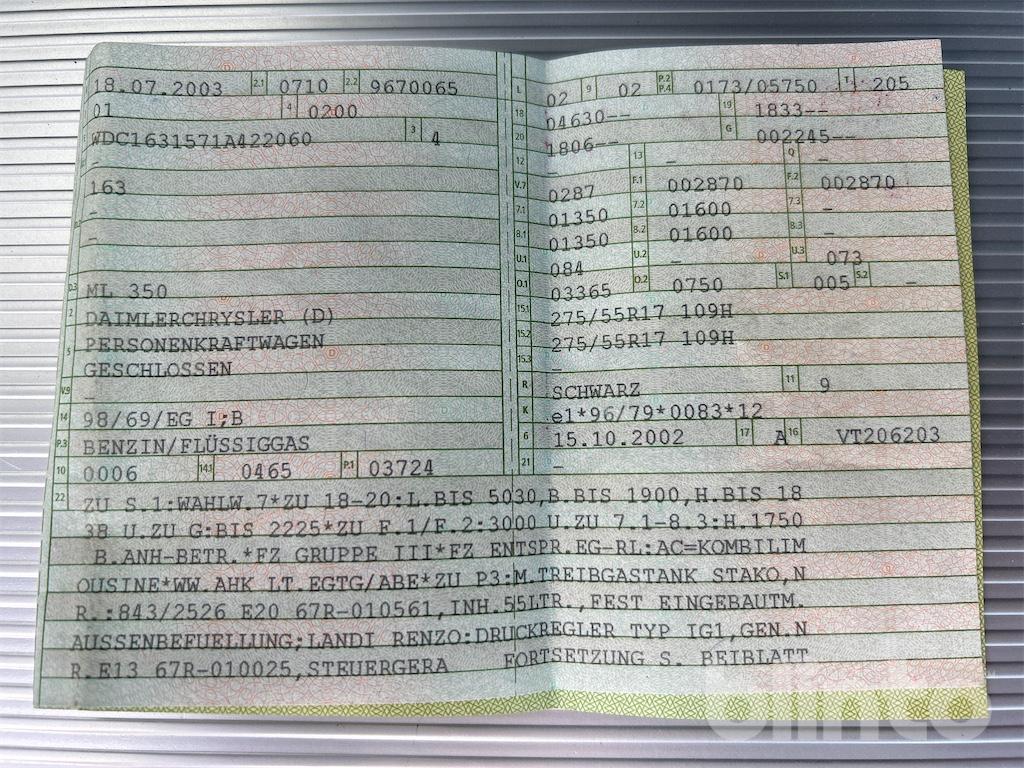 18.07.2003 2.1 0710 2.2 9670065
01 4 0200
WDC1631571A422060 3 4
163
-
-
D.3 ML 350
2 DAIMLERCHRYSLER (D)
PERSONENKRAFTWAGEN
5 GESCHLOSSEN
V.9 -
14 98/69/EG I;B
P.3 BENZIN/FLÜSSIGGAS
10 0006 14.1 0465 P.1 03724
L 02 9 02 P.2 P.4 0173/05750 T 205
18 04630-- 19 1833--
20 1806-- G 002245--
12 - 13 - Q -
V.7 0287 F.1 002870 F.2 002870
7.1 01350 7.2 01600 7.3 -
8.1 01350 8.2 01600 8.3 -
U.1 084 U.2 - U.3 073
O.1 03365 O.2 0750 S.1 005 S.2 -
15.1 275/55R17 109H
15.2 275/55R17 109H
15.3 -
R SCHWARZ 11 9
K e1*96/79*0083*12
6 15.10.2002 17 A 16 VT206203
21 -
22 ZU S.1:WAHLW.7*ZU 18-20:L.BIS 5030,B.BIS 1900,H.BIS 18
38 U.ZU G:BIS 2225*ZU F.1/F.2:3000 U.ZU 7.1-8.3:H.1750
B.ANH-BETR.*FZ GRUPPE III*FZ ENTSPR.EG-RL:AC=KOMBILIM
OUSINE*WW.AHK LT.EGTG/ABE*ZU P3:M.TREIBGASTANK STAKO,N
R.:843/2526 E20 67R-010561,INH.55LTR.,FEST EINGEBAUTM.
AUSSENBEFUELLUNG;LANDI RENZO:DRUCKREGLER TYP IG1,GEN.N
R.E13 67R-010025,STEUERGERA FORTSETZUNG S. BEIBLATT
blinto